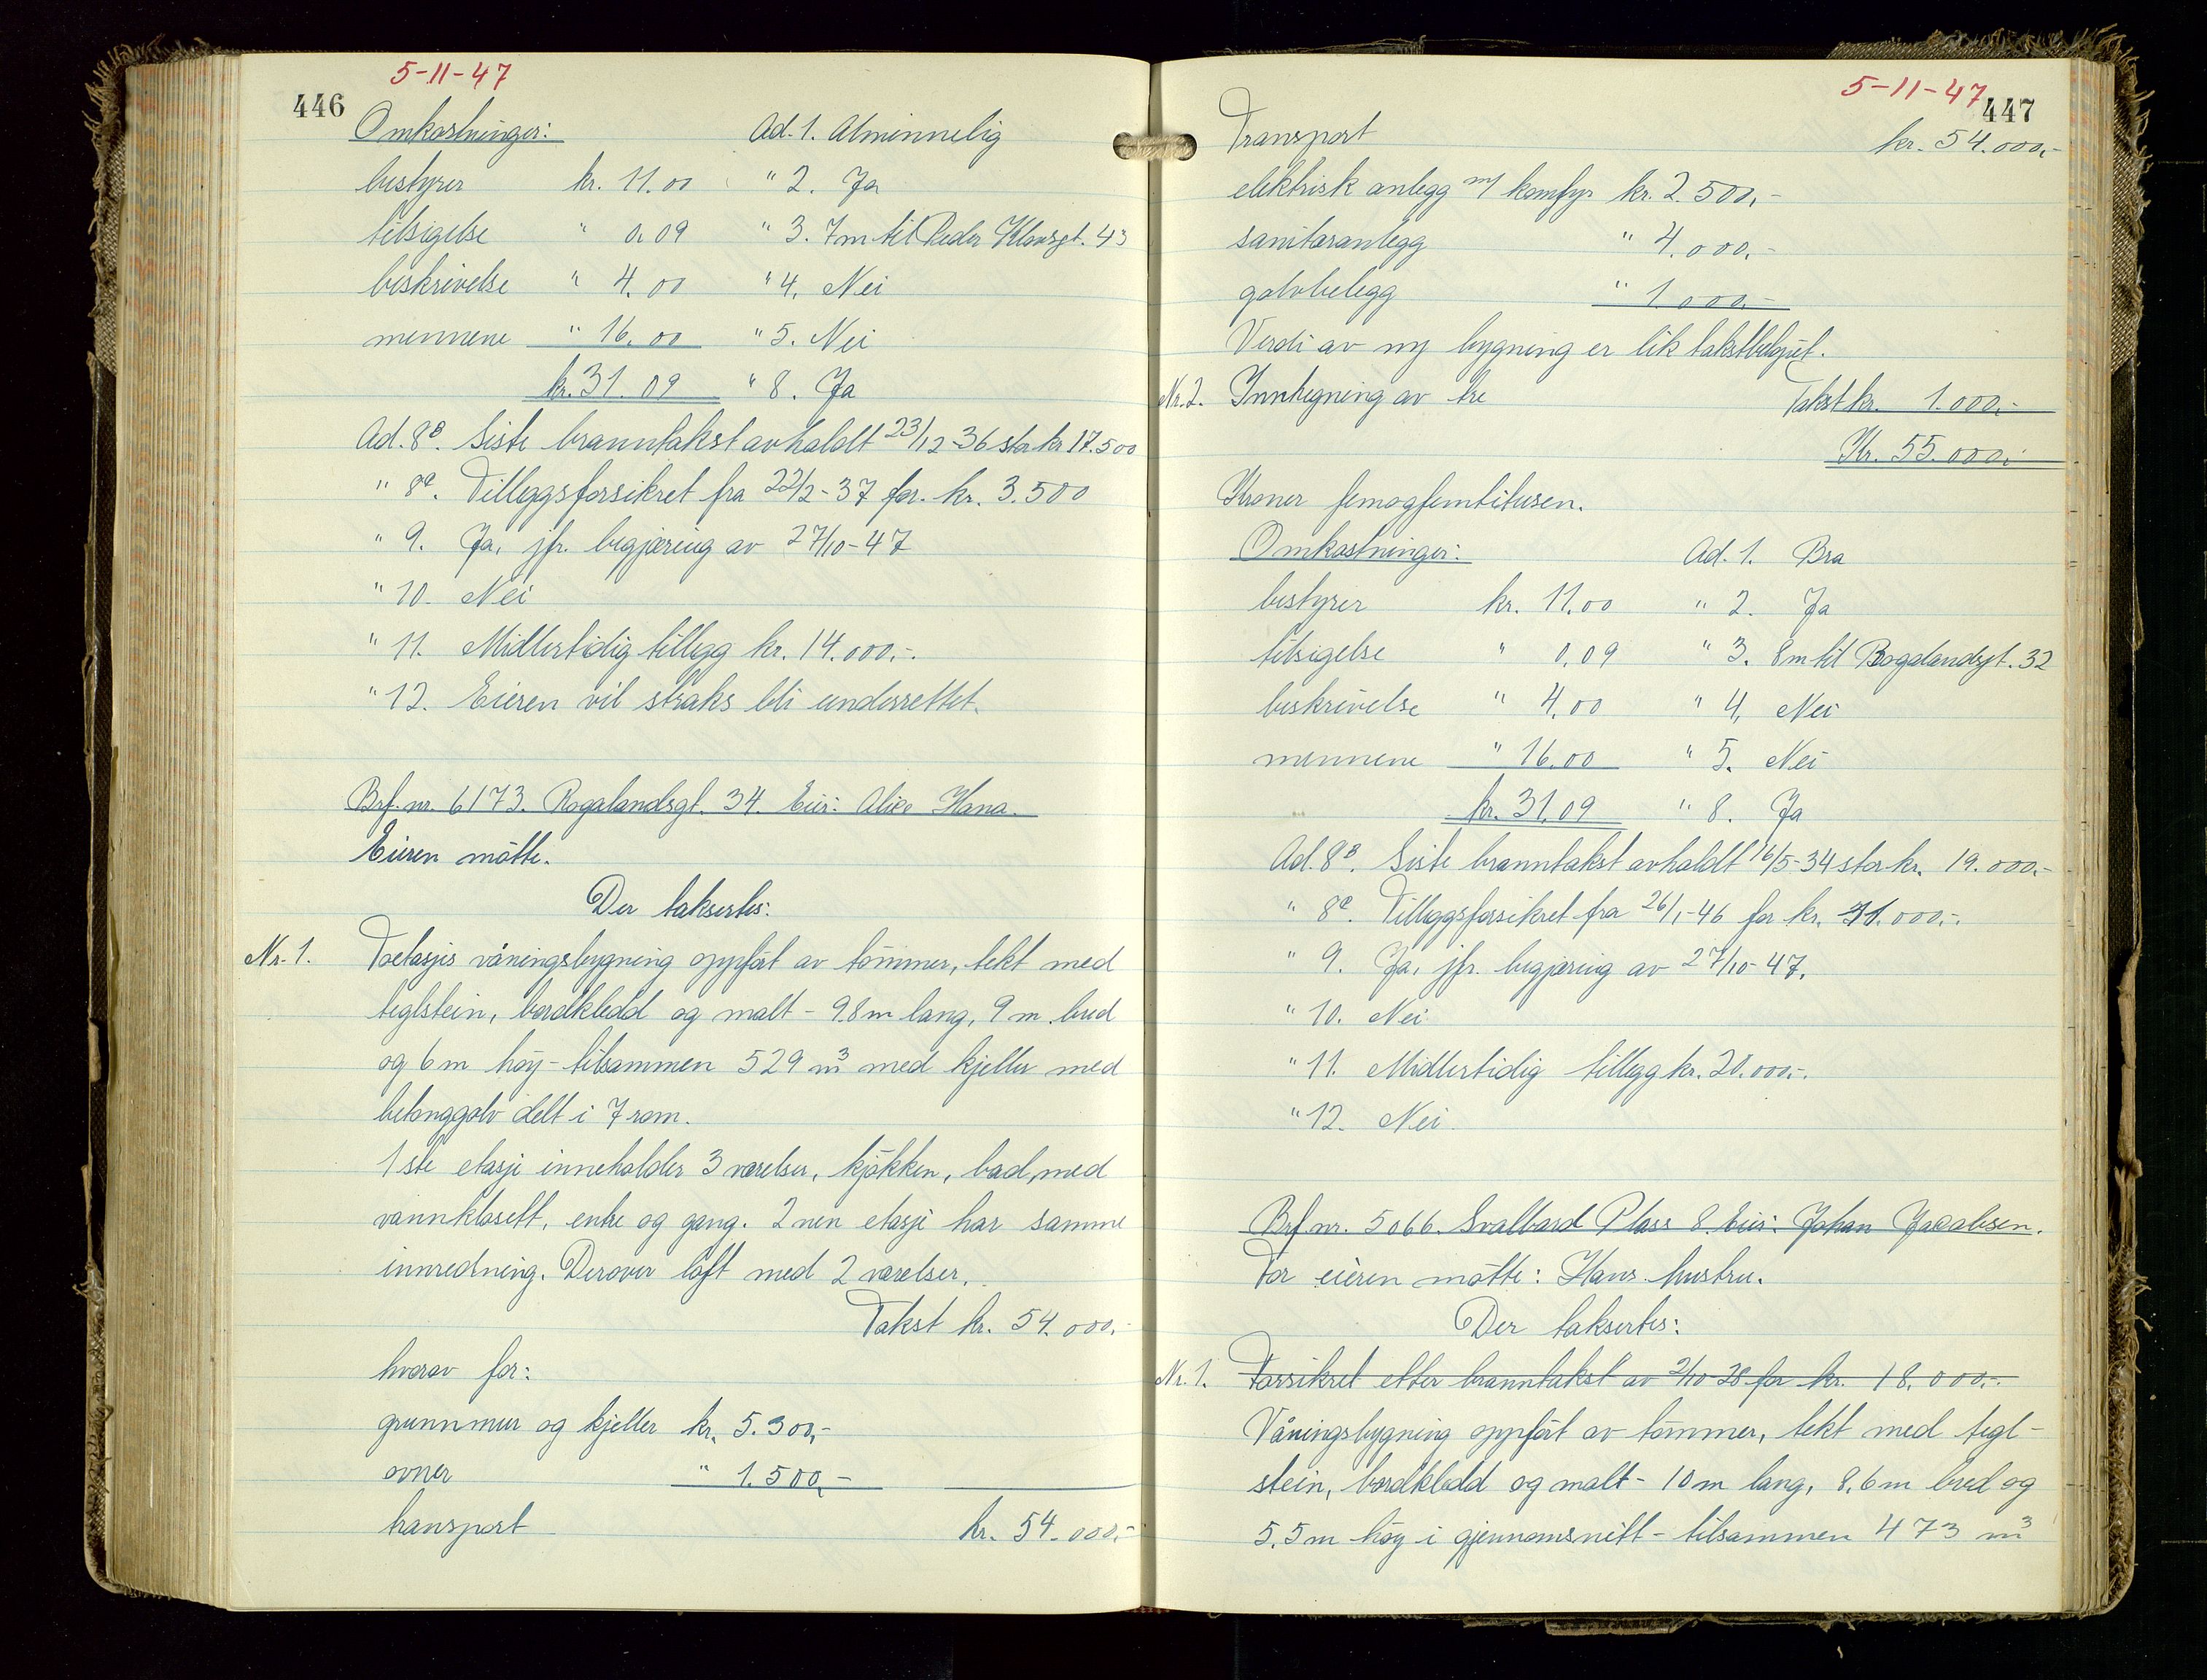 5-11-47
446
Omkostninger: Ad. 1. Alminnelig
bestyrer kr. 11.00 " 2. Ja
tilsigelse " 0.09 " 3. 7m til Peder Klowsgt. 43
beskrivelse " 4.00 " 4. Nei
mennene " 16.00 " 5. Nei
kr. 31.09 " 8. Ja
Ad. 8B. Siste branntakst avholdt 23/12-36 stor kr 17.500
" 8c. Tilleggsforsikret fra 22/2-37 for kr. 3.500
" 9. Ja, jfr. begjæring av 27/10-47
" 10. Nei
" 11. Midlertidig tillegg kr. 14.000.-.
" 12. Eieren vil straks bli underrettet.
Brf. nr. 6173. Rogalandsgt. 34. Eier: Alice Hana.
Eieren møtte.
Der taksertes:
Nr. 1. Toetasjes våningsbygning oppført av tømmer, tekt med
teglstein, bordkledd og malt - 9.8m lang, 9 m bred
og 6 m høy - tilsammen 529 m3 med kjeller med
betonggolv delt i 7 rom.
1ste etasje inneholder 3 værelser, kjøkken, bad, med
vannklosett, entre og gang. 2nen etasje har samme
innredning. Derover loft med 2 værelser.
Takst kr. 54.000.-
hvorav for:
grunnmur og kjeller kr. 5.300,-
ovner " 1.500,-
transport kr. 54.000.-
5-11-47
447
Transport kr. 54.000,-
elektrisk anlegg m/ komfyr kr. 2.500,-
sanitæranlegg " 4.000,-
golvbelegg " 1.000,-
Verdi av ny bygning er lik takstbeløpet.
Nr. 2. Innhegning av tre Takst kr. 1.000,-
Kr. 55.000.-
Kroner femogfemtitusen.
Omkostninger: Ad. 1. Bra
bestyrer kr. 11.00 " 2. Ja
tilsigelse " 0.09 " 3. 8m til Rogalandsgt. 32
beskrivelse " 4.00 " 4. Nei
mennene " 16.00 " 5. Nei
kr. 31.09 " 8. Ja
Ad. 8B. Siste branntakst avholdt 16/5-34 stor kr. 19.000,-
" 8c. Tilleggsforsikret fra 26/1-46 for kr. 31.000.-.
" 9. Ja, jfr. begjæring av 27/10-47.
" 10. Nei
" 11. Midlertidig tillegg kr. 20.000.-.
" 12. Nei
Brf. nr. 5066. Svalbard Plass 8. Eier: Johan Jacobsen.
For eieren møtte: Hans hustru.
Der taksertes:
Nr. 1. Forsikret etter branntakst av 2/10-28 for kr. 18.000.-.
Våningsbygning oppført av tømmer, tekt med tegl-
stein, bordkledd og malt - 10 m lang, 8,6 m bred og
5,5 m høy i gjennomsnitt - tilsammen 473 m3